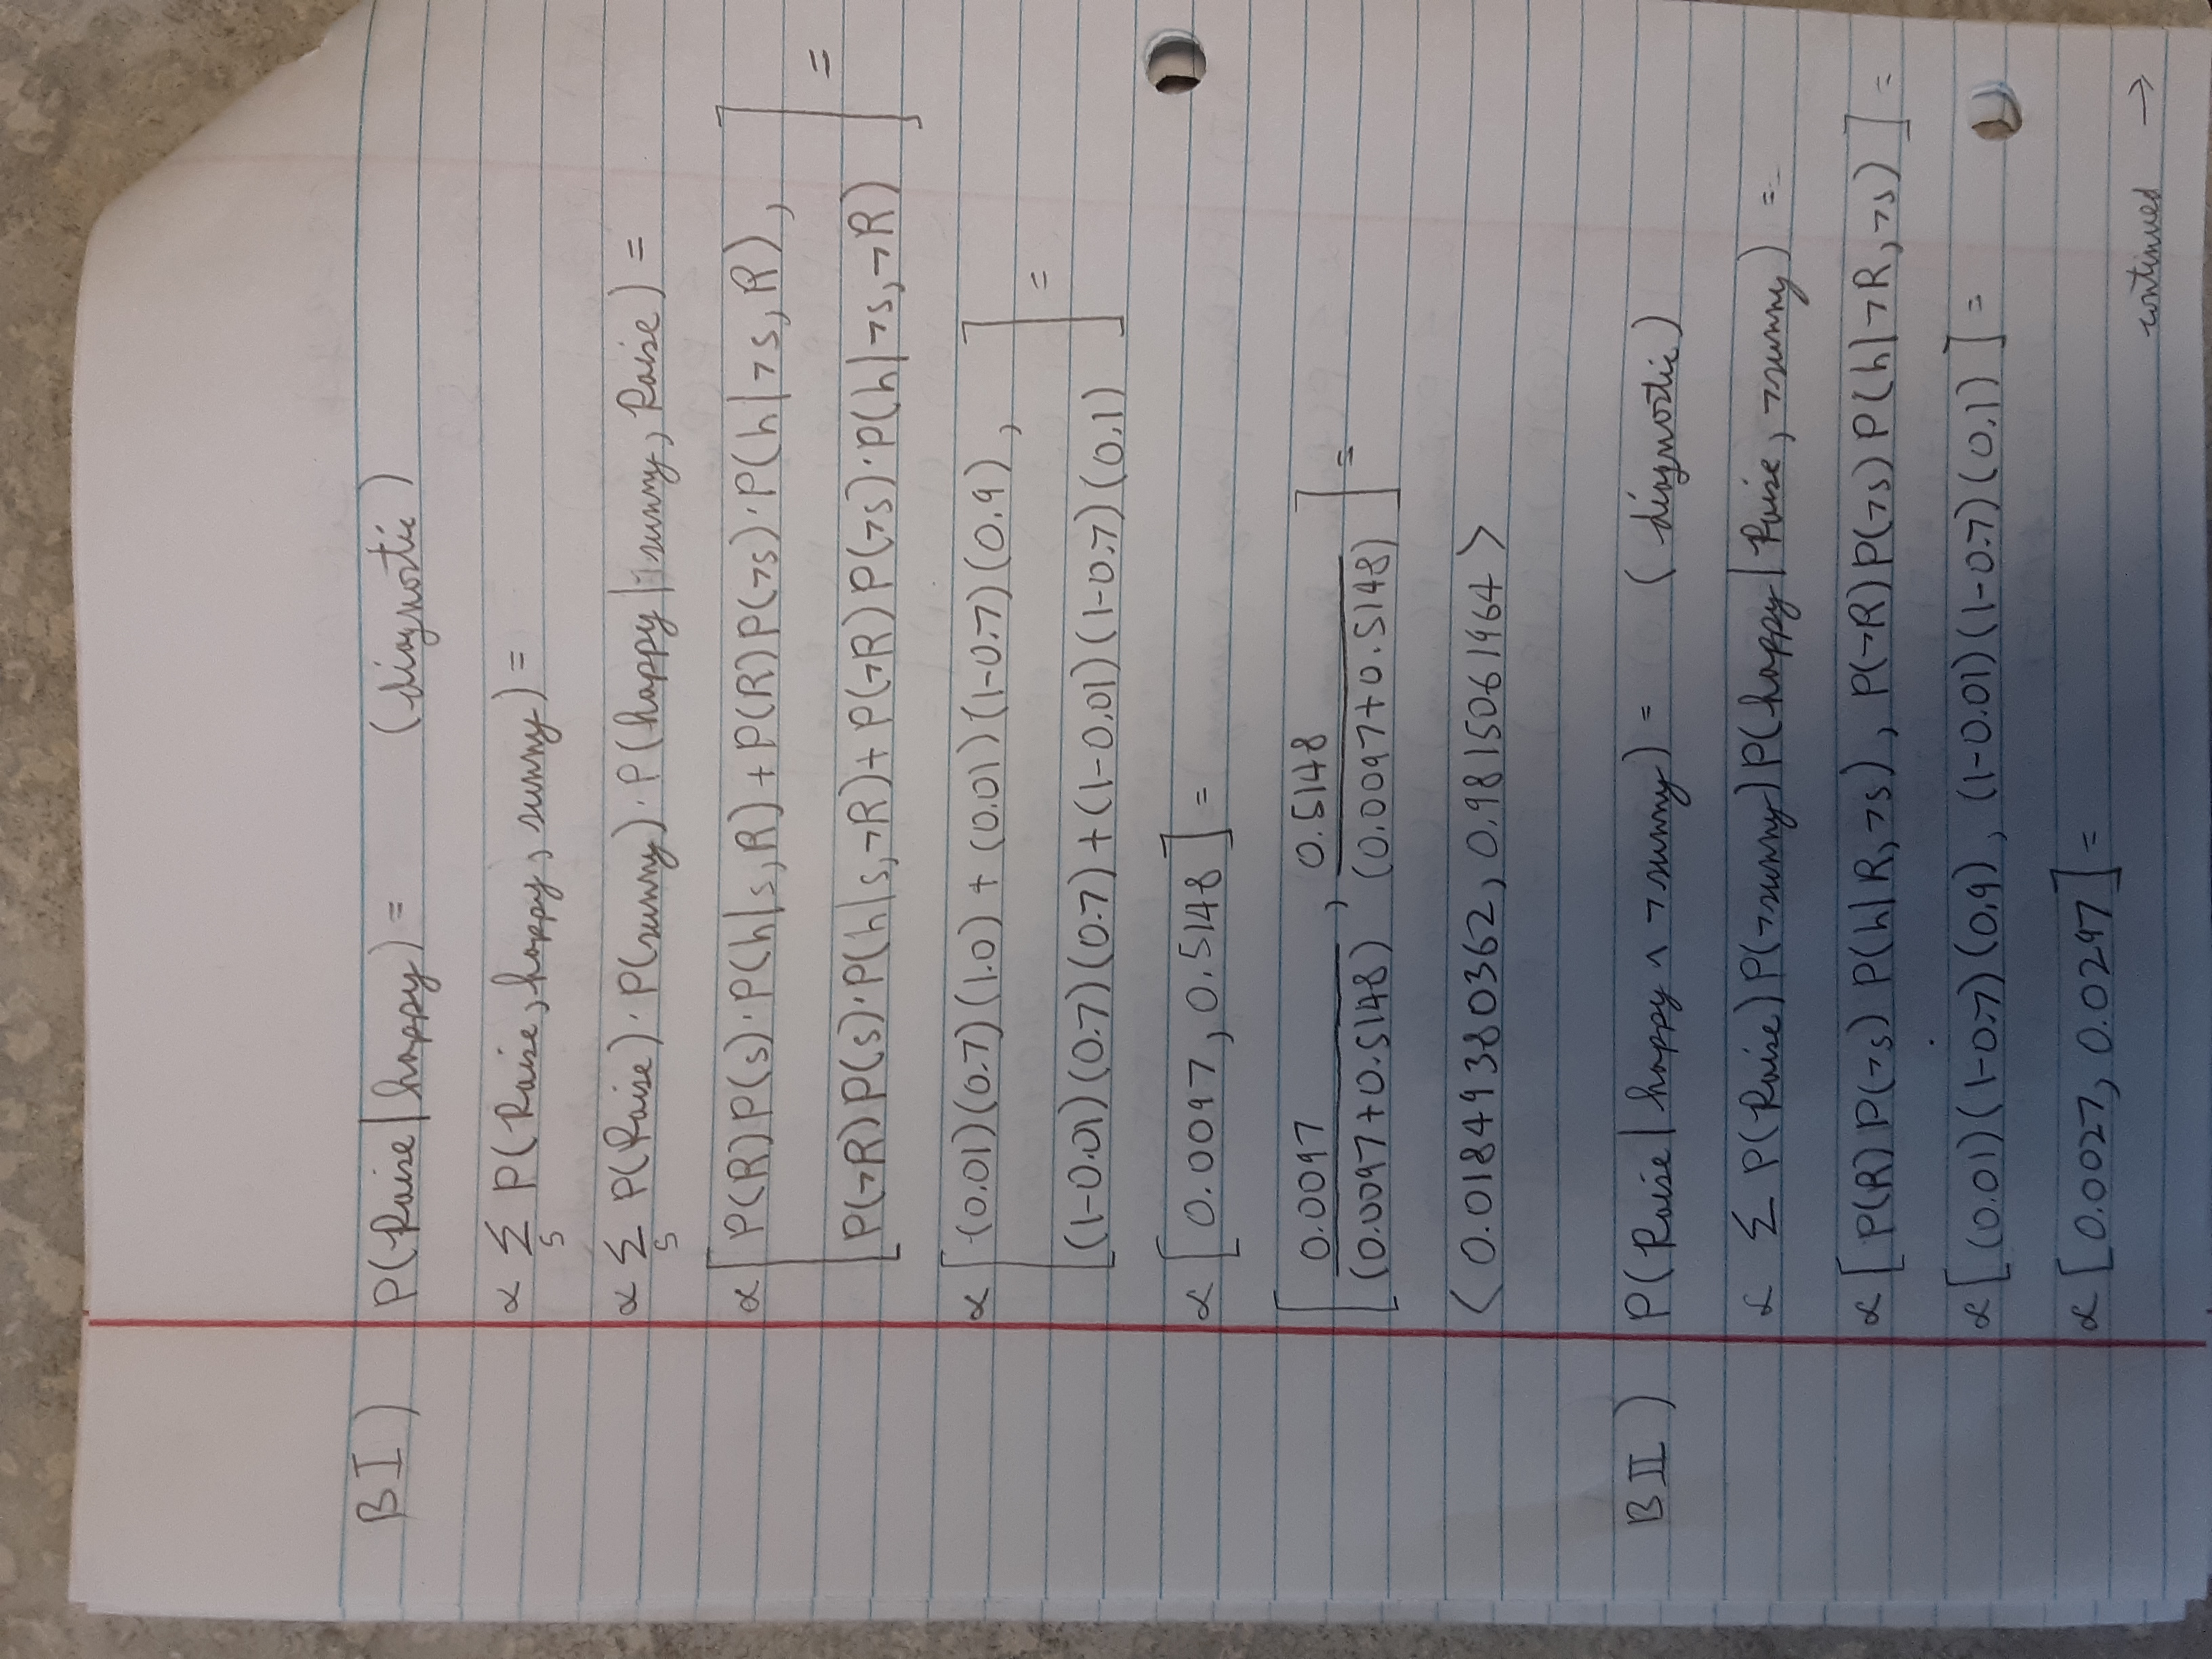 BI) P(Raise|happy) = (diagnostic)
∝ Σ P(Raise, happy, sunny) =
s
∝ Σ P(Raise)·P(sunny)·P(happy|sunny, Raise) =
s
∝ [ P(R)P(s)·P(h|s,R) + P(R)P(¬s)·P(h|¬s, R),
P(¬R)P(s)·P(h|s,¬R) + P(¬R)P(¬s)·P(h|¬s,¬R) ] =
∝ [ (0.01)(0.7)(1.0) + (0.01)(1-0.7)(0.9),
(1-0.01)(0.7)(0.7) + (1-0.01)(1-0.7)(0.1) ] =
∝ [ 0.0097, 0.5148 ] =
[ 0.0097 , 0.5148
(0.0097+0.5148) (0.0097+0.5148) ] =
⟨ 0.01849380362, 0.9815061964 ⟩
BII) P(Raise|happy ∧ ¬sunny) = (diagnostic)
∝ Σ P(Raise)P(¬sunny)P(happy|Raise, ¬sunny) =
∝ [ P(R)P(¬s) P(h|R,¬s), P(¬R)P(¬s)P(h|¬R,¬s) ] =
∝ [ (0.01)(1-0.7)(0.9), (1-0.01)(1-0.7)(0.1) ] =
∝ [ 0.0027, 0.0297 ] =
continued →